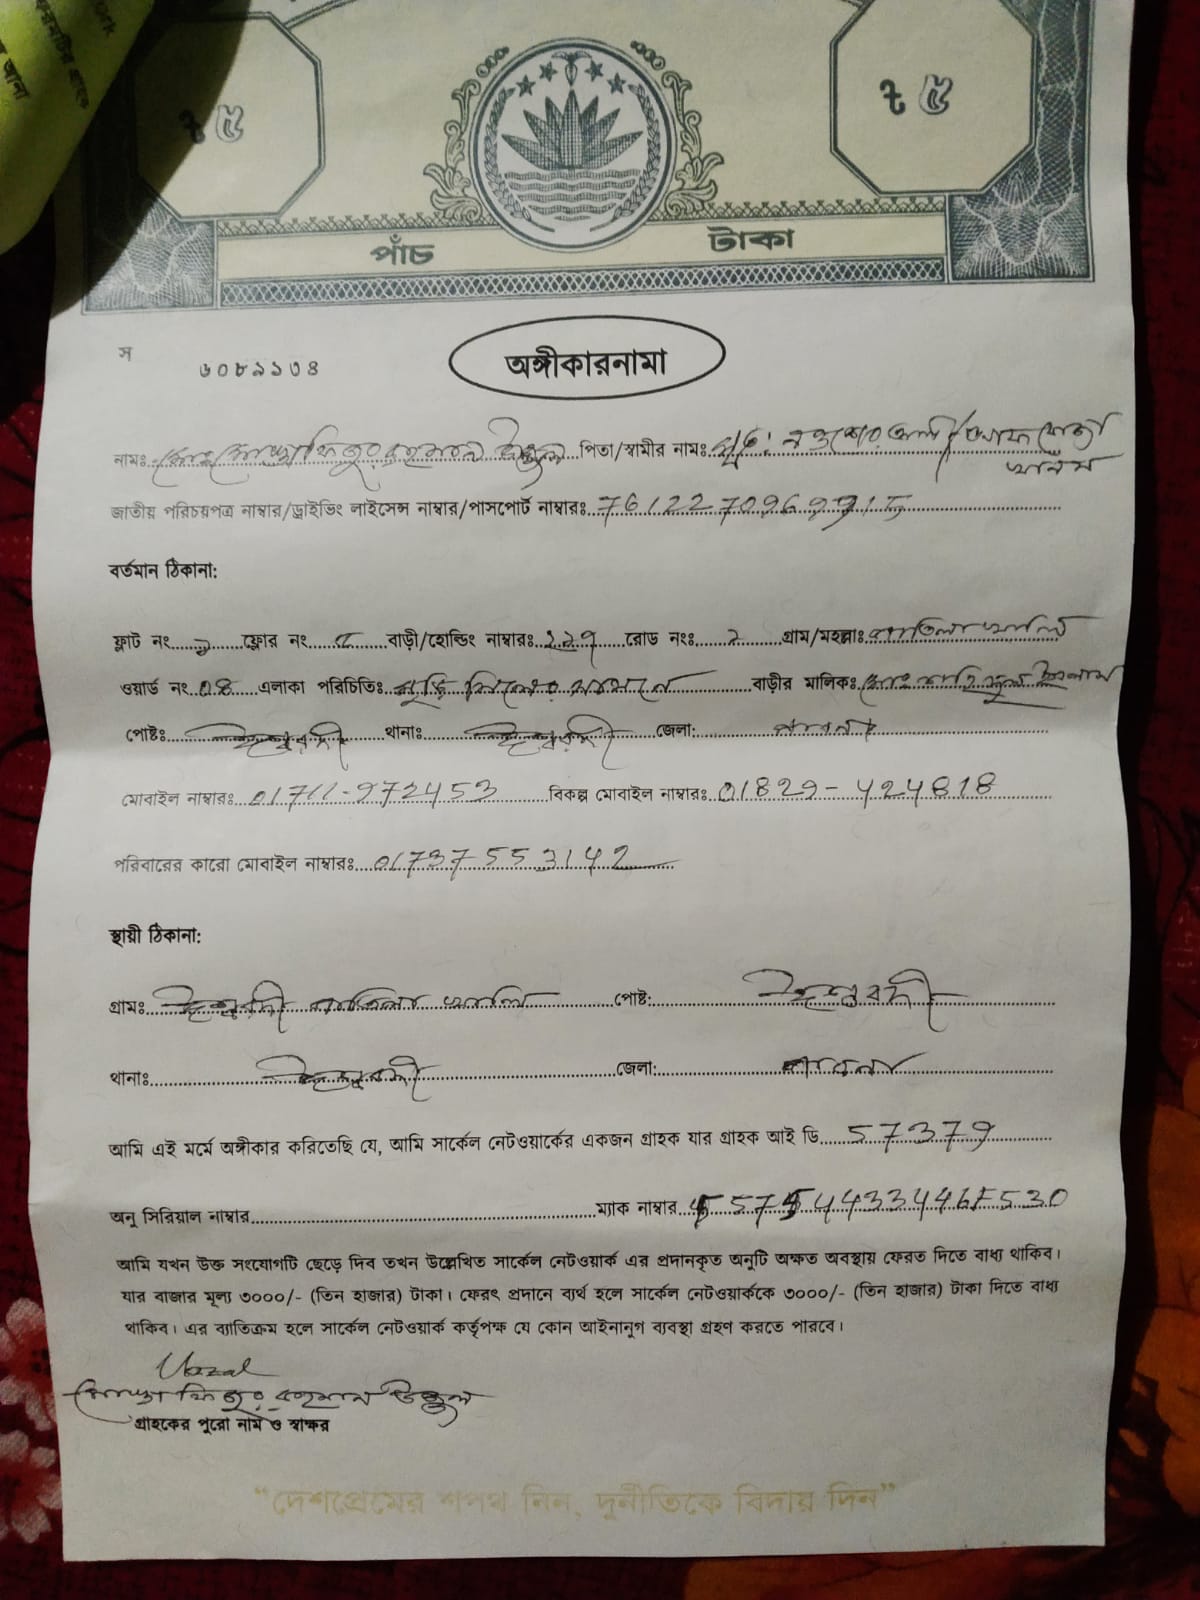 ৳ ৫
৳ ৫
পাঁচ টাকা
স ৬০৮৯১৩৪
অঙ্গীকারনামা
নামঃ মোঃ মোস্তাফিজুর রহমান উজ্জ্বল পিতা/স্বামীর নামঃ মৃত:
জাতীয় পরিচয়পত্র নাম্বার/ড্রাইভিং লাইসেন্স নাম্বার/পাসপোর্ট নাম্বারঃ
বর্তমান ঠিকানা:
ফ্লাট নং ফ্লোর নং বাড়ী/হোল্ডিং নাম্বারঃ রোড নংঃ গ্রাম/মহল্লাঃ
ওয়ার্ড নং 08 এলাকা পরিচিতিঃ বাড়ীর মালিকঃ
পোষ্টঃ ঈশ্বরদী থানাঃ ঈশ্বরদী জেলা: পাবনা
মোবাইল নাম্বারঃ 01711-972453 বিকল্প মোবাইল নাম্বারঃ 01829-424818
পরিবারের কারো মোবাইল নাম্বারঃ 01737553142
স্থায়ী ঠিকানা:
গ্রামঃ ঈশ্বরদী পোষ্ট: ঈশ্বরদী
থানাঃ ঈশ্বরদী জেলা: পাবনা
আমি এই মর্মে অঙ্গীকার করিতেছি যে, আমি সার্কেল নেটওয়ার্কের একজন গ্রাহক যার গ্রাহক আই ডি 57379
অনু সিরিয়াল নাম্বার ম্যাক নাম্বার
আমি যখন উক্ত সংযোগটি ছেড়ে দিব তখন উল্লেখিত সার্কেল নেটওয়ার্ক এর প্রদানকৃত অনুটি অক্ষত অবস্থায় ফেরত দিতে বাধ্য থাকিব।
যার বাজার মূল্য ৩০০০/- (তিন হাজার) টাকা। ফেরৎ প্রদানে ব্যর্থ হলে সার্কেল নেটওয়ার্ককে ৩০০০/- (তিন হাজার) টাকা দিতে বাধ্য
থাকিব। এর ব্যাতিক্রম হলে সার্কেল নেটওয়ার্ক কর্তৃপক্ষ যে কোন আইনানুগ ব্যবস্থা গ্রহণ করতে পারবে।
মোস্তাফিজুর রহমান উজ্জ্বল
গ্রাহকের পুরো নাম ও স্বাক্ষর
“দেশপ্রেমের শপথ নিন, দুর্নীতিকে বিদায় দিন”